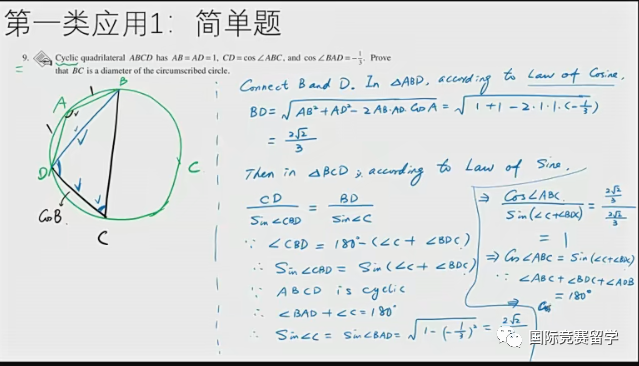 第一类应用1：简单题
9. Cyclic quadrilateral ABCD has AB = AD = 1, CD = cos ∠ABC, and cos ∠BAD = -1/3. Prove
that BC is a diameter of the circumscribed circle.
A
B
D
C
C
1
1
CosB
Connect B and D. In △ABD, according to Law of Cosine,
BD = √(AB² + AD² - 2AB·AD·cosA) = √(1+1-2·1·1·(-1/3))
= 2√2/3
Then in △BCD, according to Law of Sine,
CD/Sin∠CBD = BD/Sin∠C
∵ ∠CBD = 180° - (∠C + ∠BDC)
∴ Sin∠CBD = Sin(∠C + ∠BDC)
∵ ABCD is cyclic
∴ ∠BAD + ∠C = 180°
∴ Sin∠C = Sin∠BAD = √(1-(-1/3)²) = 2√2
⇒ Cos∠ABC/Sin(∠C+∠BDC) = (2√2/3)/(2√2/3)
= 1
⇒ Cos∠ABC = Sin(∠C+∠BDC)
∵ ∠ABC + ∠BDC + ∠ADB
= 180°
⇒ Cos
国际竞赛留学